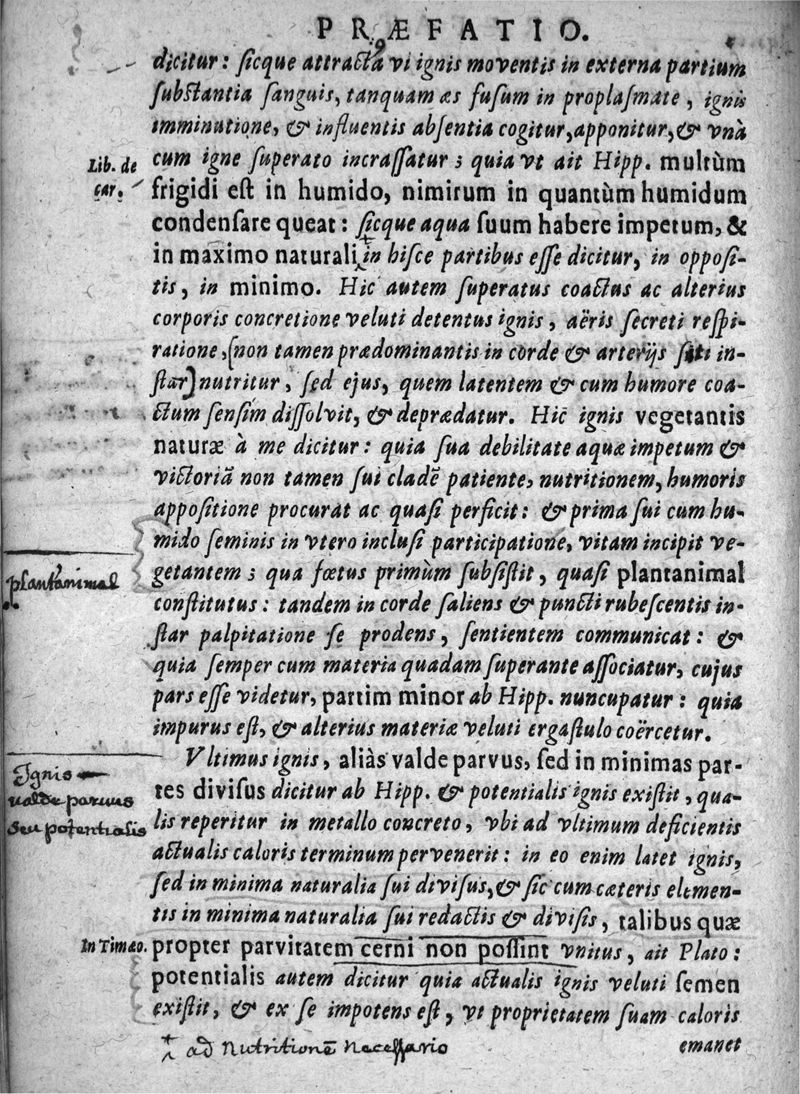 PRÆFATIO.
dicitur: ſicque attracta vi ignis moventis in externa partium
ſubſtantia ſanguis, tanquam æs fuſum in proplaſmate, ignis
imminutione, & influentis abſentia cogitur, apponitur, & vnà
Lib. de car.
cum igne ſuperato incraſſatur; quia vt ait Hipp. multùm
frigidi eſt in humido, nimirum in quantùm humidum
condenſare queat: ſicque aqua ſuum habere impetum, &
in maximo naturali in hiſce partibus eſſe dicitur, in oppoſi-
tis, in minimo. Hic autem ſuperatus coactus ac alterius
corporis concretione veluti detentus ignis, aëris ſecreti reſpi-
ratione, [non tamen prædominantis in corde & arterijs ſiti in-
ſtar] nutritur, ſed ejus, quem latentem & cum humore coa-
ctum ſenſim diſſolvit, & deprædatur. Hic ignis vegetantis
naturæ à me dicitur: quia ſua debilitate aquæ impetum &
victoriã non tamen ſui cladẽ patiente, nutritionem, humoris
appoſitione procurat ac quaſi perficit: & prima ſui cum hu-
mido ſeminis in vtero incluſi participatione, vitam incipit ve-
plantanimal
getantem; qua fœtus primùm ſubſiſtit, quaſi plantanimal
conſtitutus: tandem in corde ſaliens & puncti rubeſcentis in-
ſtar palpitatione ſe prodens, ſentientem communicat: &
quia ſemper cum materia quadam ſuperante aſſociatur, cujus
pars eſſe videtur, partim minor ab Hipp. nuncupatur: quia
impurus eſt, & alterius materiæ veluti ergaſtulo coërcetur.
Vltimus ignis, aliàs valde parvus, ſed in minimas par-
Ignis
valde parvus
seu potentialis
tes diviſus dicitur ab Hipp. & potentialis ignis exiſtit, qua-
lis reperitur in metallo concreto, vbi ad vltimum deficientis
actualis caloris terminum pervenerit: in eo enim latet ignis,
ſed in minima naturalia ſui diviſus, & ſic cum cæteris elemen-
tis in minima naturalia ſui redactis & diviſis, talibus quæ
In Timæo.
propter parvitatem cerni non poſſint vnitus, ait Plato:
potentialis autem dicitur quia actualis ignis veluti ſemen
exiſtit, & ex ſe impotens eſt, vt proprietatem ſuam caloris
emanet
ad Nutritionẽ necessario